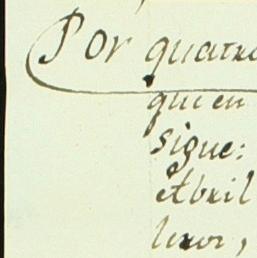 Por quatro
quien
sigue:
Abril